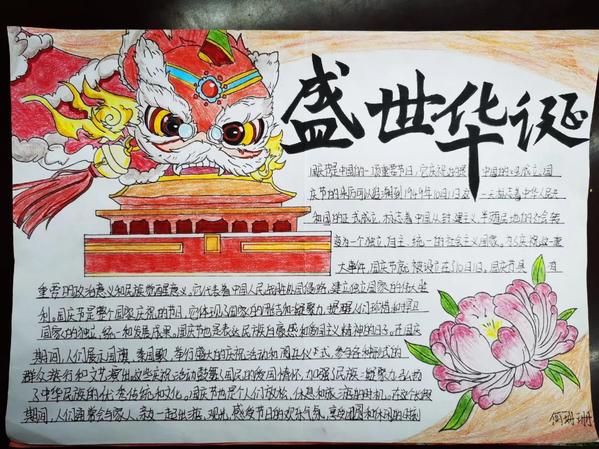 盛世华诞
国庆节是中国的一项重要节日，它庆祝的是中国的成立，国
庆节的来历可以追溯到1949年10月1日，这一天标志着中华人民共
和国的正式成立，标志着中国从封建主义、半殖民地的社会转
变为一个独立、自主、统一的社会主义国家。为庆祝这一重
大事件，国庆节就被设立在了10月1日，国庆节具有
重要的政治意义和民族觉醒意义，它代表着中国人民战胜外国侵略，建立独立国家的伟大胜
利。国庆节是整个国家庆祝的节日，它体现了国家的团结和凝聚力，提醒人们珍惜和捍卫
国家的独立、统一和发展成果。国庆节也是表达民族自豪感和爱国主义精神的日子。在国庆
期间，人们展示国旗、奏国歌、举行盛大的庆祝活动和阅兵仪式，参与各种形式的
群众游行和文艺演出这些庆祝活动鼓舞了国民的爱国情怀，加强了民族凝聚力弘扬
了中华民族的优秀传统和文化。国庆节也是个人们放松、休息和旅游的时机。在这个长假
期间，人们通常会与家人、亲友一起出游、观光，感受节日的欢乐气氛，享受团圆和休闲的时刻
何珊珊